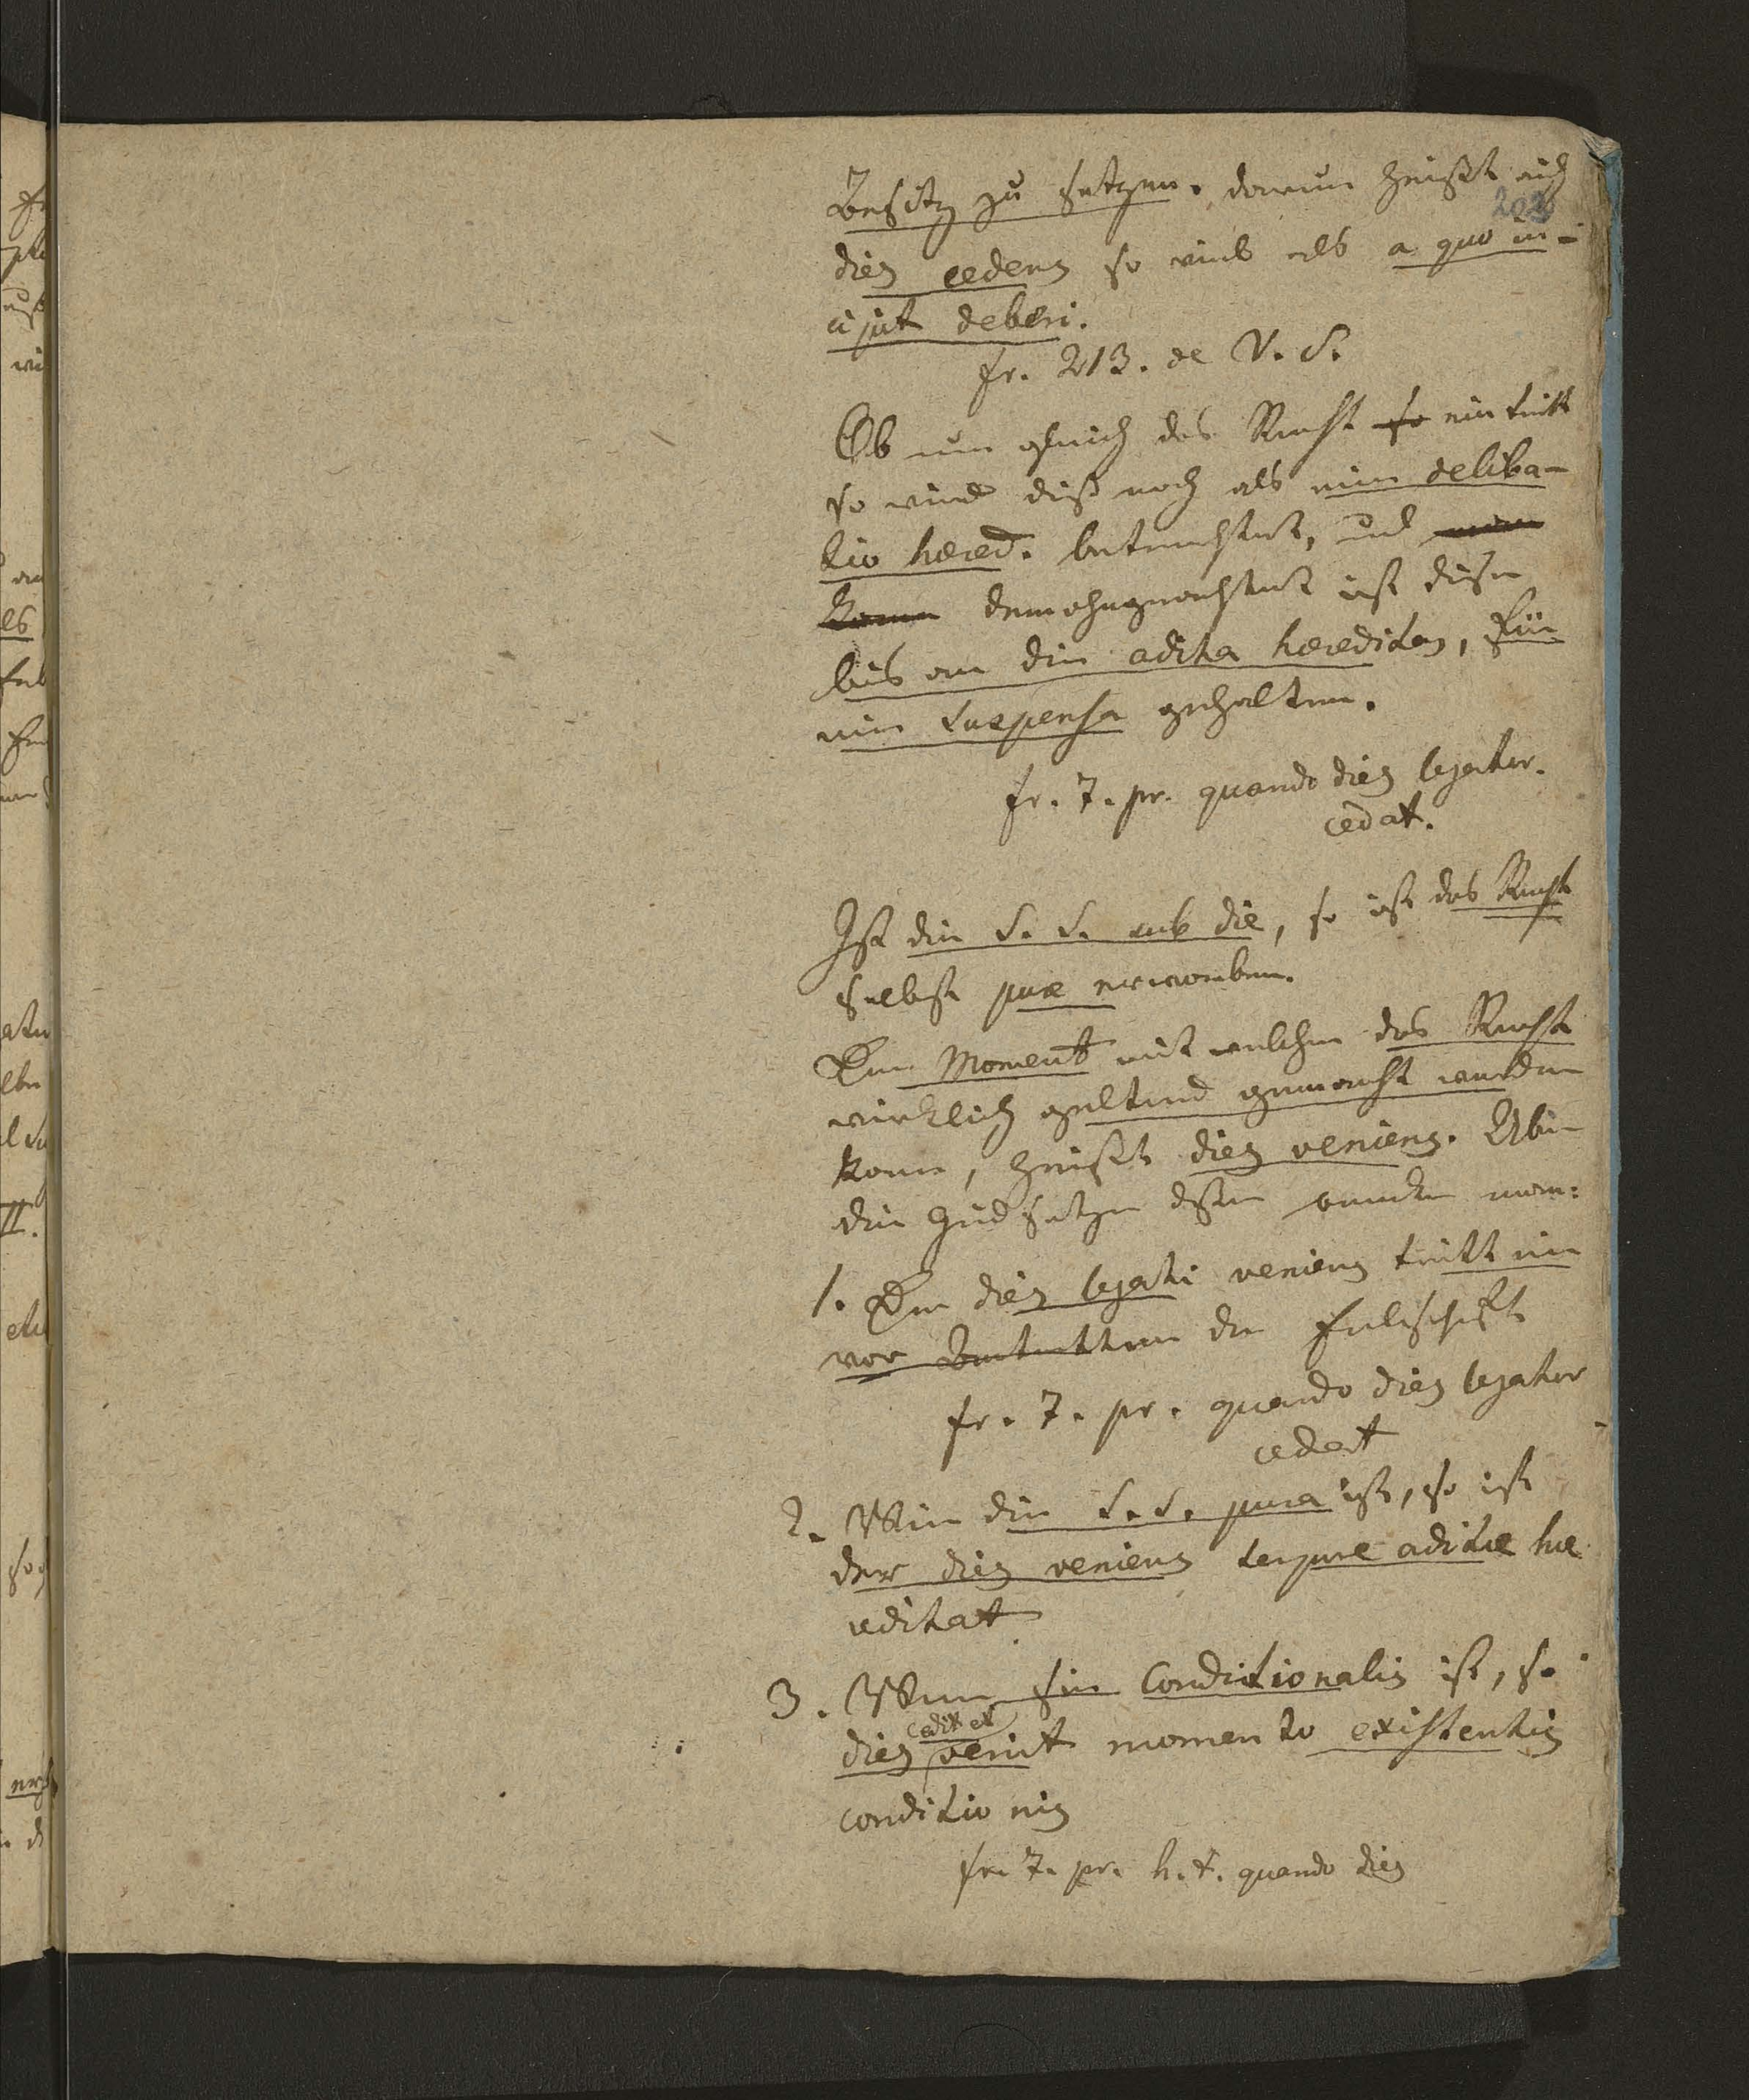 Besitz zu setzen. darum heißt auch
202
dies cedens so viel als a quo in-
cipit deberi.
fr. 213. de V. S.
Ob nun gleich das Recht so eintritt
so wird dieß noch als eine deliba-
tio hered. betrachtet, und
kann demohngeachtet ist diese
bis an die adita hereditas, für
eine suspensa gehalten.
fr. 7. pr. quando dies legator.
cedat.
Ist die S. S. sub die, so ist das Recht
selbst pure erworben.
Der Moment mit welchem das Recht
wirklich geltend gemacht werden
kann, heißt dies veniens. Über
die
1. Der dies legati veniens tritt nie
vor der Erbschaft
fr. 7. pr. quando dies legator
cedat
2. Wenn die S. S. pura ist, so ist
der dies veniens aditæ he
reditat
3. Wenn sie conditionalis ist, so
cedit et
dies venit momento existentis
conditionis
fr. 7. pr. h. t. quando dies